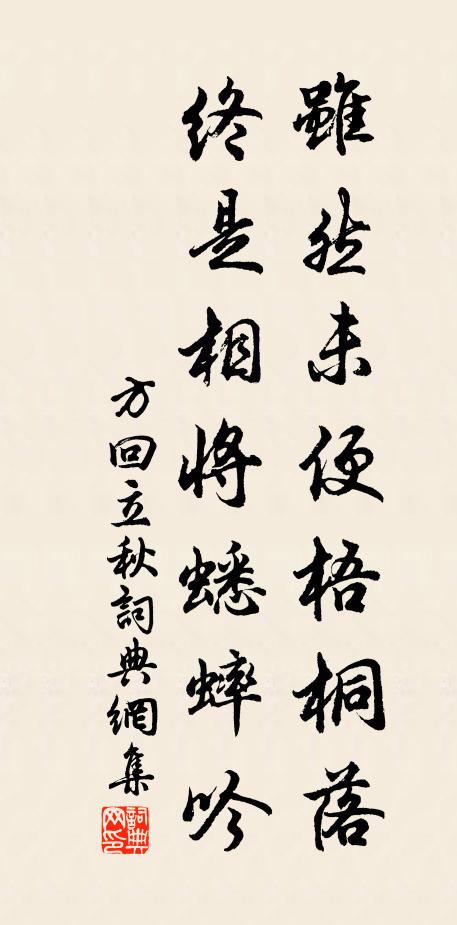 雖然未便梧桐落
終是相將蟋蟀吟
方回立秋詞典網集
詞典
网印